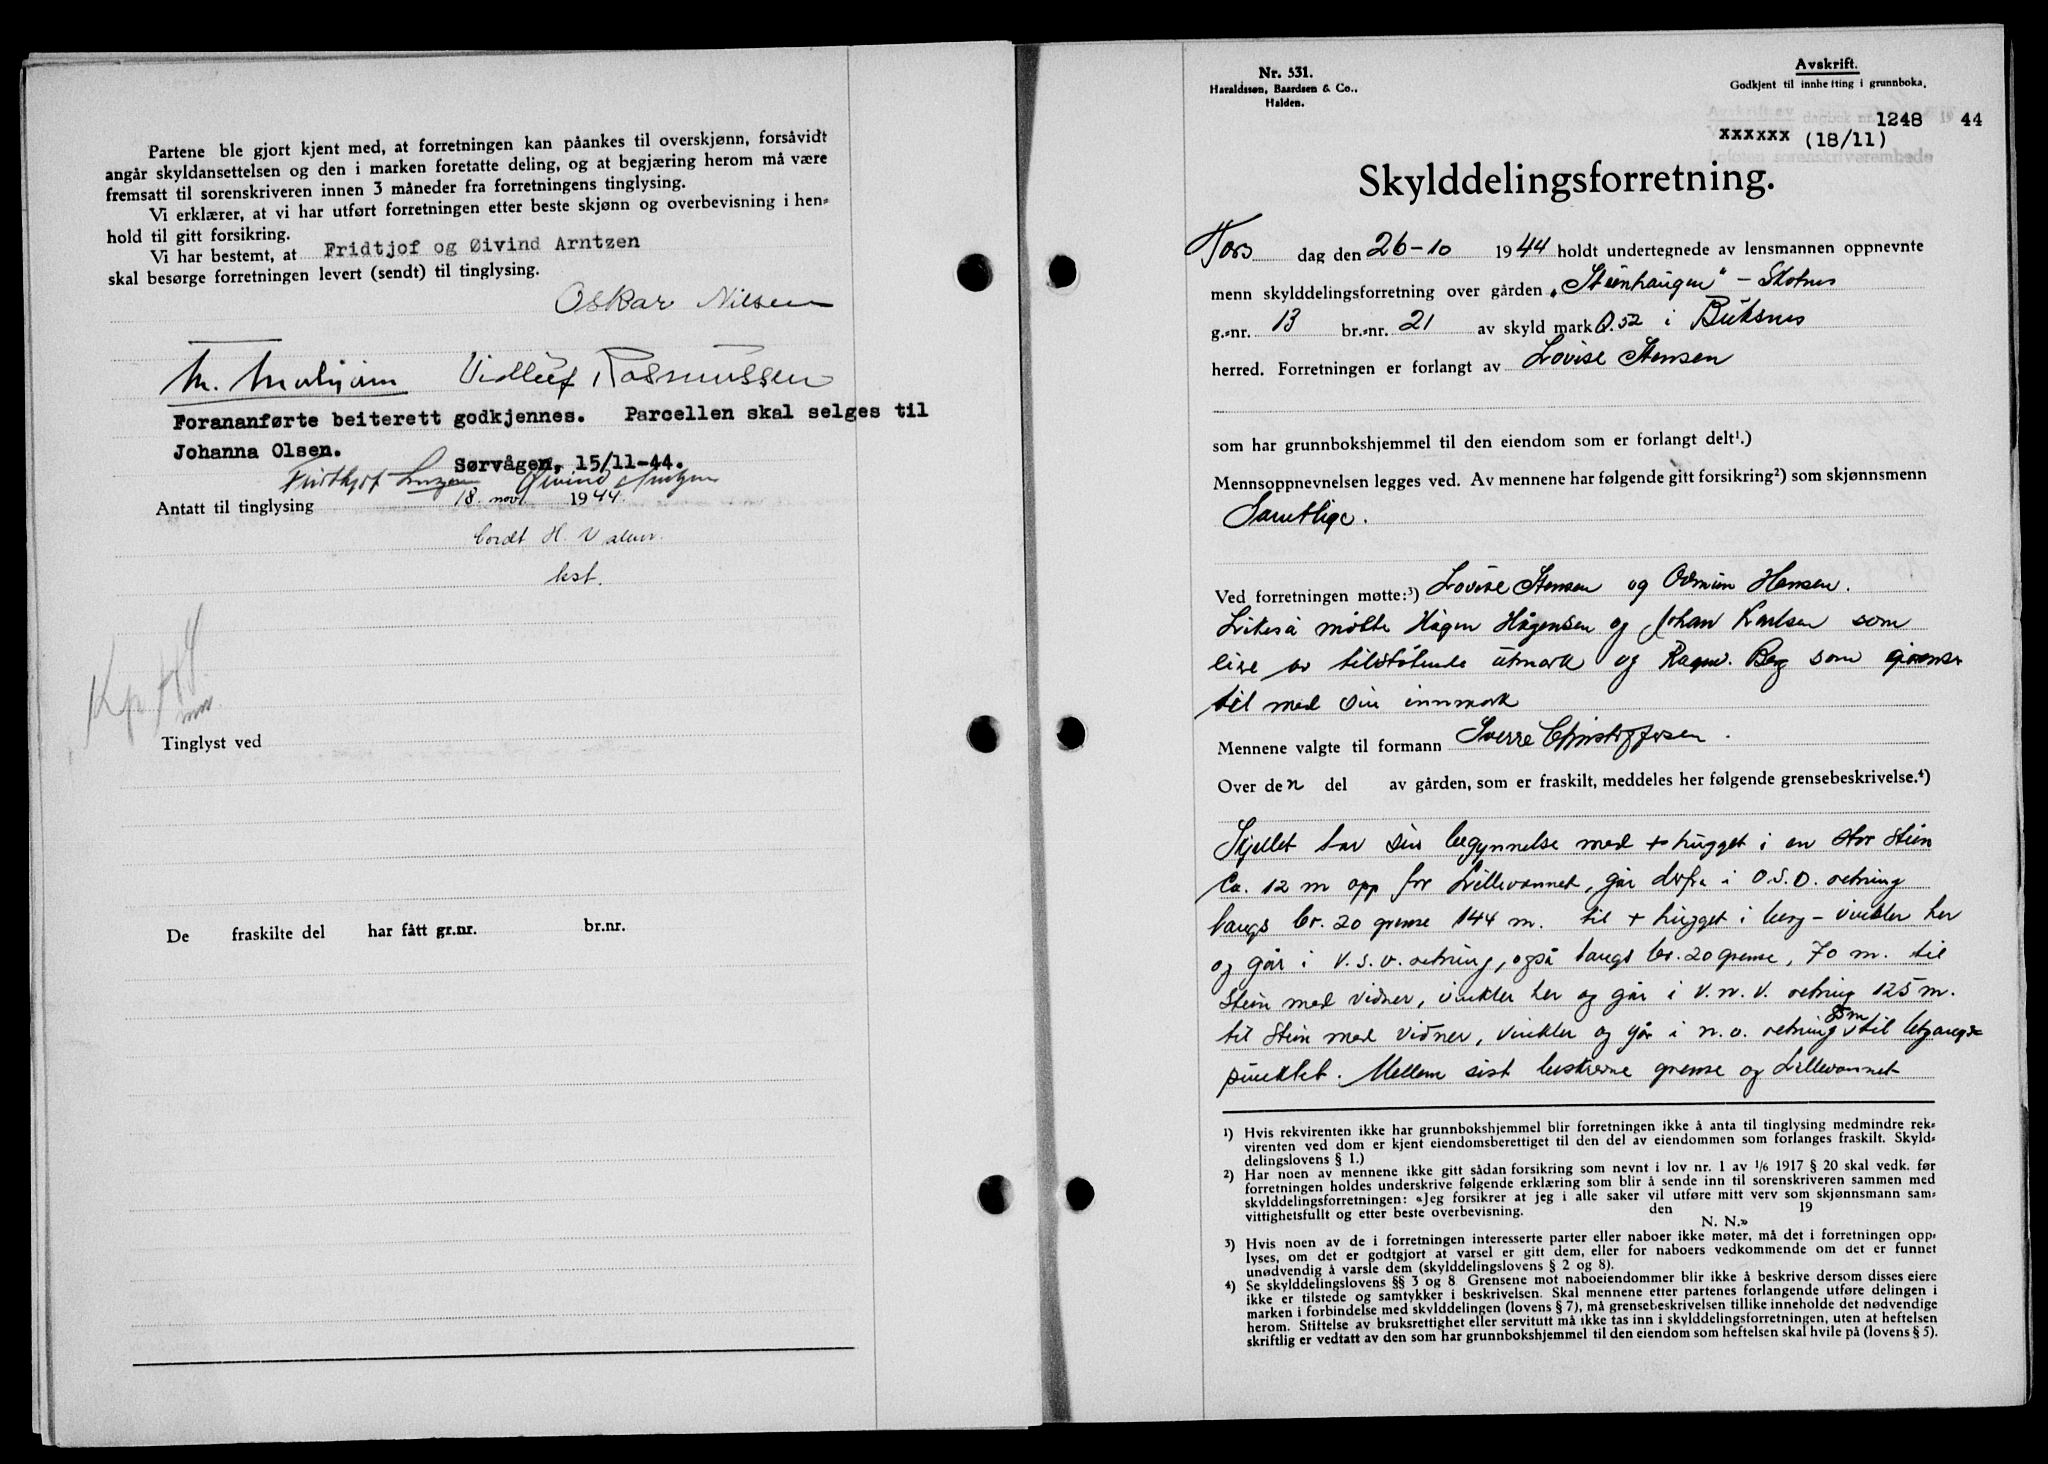 Partene ble gjort kjent med, at forretningen kan påankes til overskjønn, forsåvidt
angår skyldansettelsen og den i marken foretatte deling, og at begjæring herom må være
fremsatt til sorenskriveren innen 3 måneder fra forretningens tinglysing.
Vi erklærer, at vi har utført forretningen etter beste skjønn og overbevisning i hen-
hold til gitt forsikring.
Vi har bestemt, at Fridtjof og Øivind Arntzen
skal besørge forretningen levert (sendt) til tinglysing.
Oskar Nilsen
Rasmussen
Forananførte beiterett godkjennes. Parcellen skal selges til
Johanna Olsen.
Sørvågen, 15/11-44.
Antatt til tinglysing 18. nov. 1944.
H.
kst.
Tinglyst ved
De fraskilte del har fått gr.nr. br.nr.
Nr. 531.
Haraldssøn, Baardsen & Co.,
Halden.
Avskrift.
Godkjent til innhefting i grunnboka.
1248 44
xxxxxx (18/11)
Skylddelingsforretning.
Tors dag den 26-10 1944 holdt undertegnede av lensmannen oppnevnte
menn skylddelingsforretning over gården „Steinhaugen" - Skotnes
g.-nr. 13 br.-nr. 21 av skyld mark 0.52 i Buksnes
herred. Forretningen er forlangt av Lovise Stensen
som har grunnbokshjemmel til den eiendom som er forlangt delt¹.)
Mennsoppnevnelsen legges ved. Av mennene har følgende gitt forsikring²) som skjønnsmenn
Samtlige.
Ved forretningen møtte:³) Lovise Stensen og Hansen.
Likeså møtte Hågen Hågensen og Johan Karlsen som
eire av tilstøtende utmark og Ragnv. Berg som grenser
til med sin innmark
Mennene valgte til formann Sverre Christoffersen.
Over den del av gården, som er fraskilt, meddeles her følgende grensebeskrivelse.⁴)
Skjellet tar sin begynnelse med + hugget i en stor stein
ca. 12 m opp for Lillevannet, går derfra i O.S.O. retning
langs br. 20 grense 144 m. til + hugget i berg - vinkler her
og går i V.S.V. retning, også langs br. 20 grense, 70 m. til
stein med vidner, vinkler her og går i V.N.V. retning 125 m.
til stein med vidner, vinkler og går i n.o. retning 85 m til utgangs-
punktet. Mellem sist beskrevne grense og Lillevannet
¹) Hvis rekvirenten ikke har grunnbokshjemmel blir forretningen ikke å anta til tinglysing medmindre rek-
virenten ved dom er kjent eiendomsberettiget til den del av eiendommen som forlanges fraskilt. Skyld-
delingslovens § 1.)
²) Har noen av mennene ikke gitt sådan forsikring som nevnt i lov nr. 1 av 1/6 1917 § 20 skal vedk. før
forretningen holdes underskrive følgende erklæring som blir å sende inn til sorenskriveren sammen med
skylddelingsforretningen: «Jeg forsikrer at jeg i alle saker vil utføre mitt verv som skjønnsmann sam-
vittighetsfullt og etter beste overbevisning. den 19
N. N.»
³) Hvis noen av de i forretningen interesserte parter eller naboer ikke møter, må det i forretningen opp-
lyses, om det er godtgjort at varsel er gitt dem, eller for naboers vedkommende om det er funnet
unødvendig å varsle dem (skylddelingslovens § 2 og 8).
⁴) Se skylddelingslovens §§ 3 og 8. Grensene mot naboeiendommer blir ikke å beskrive dersom disses eiere
ikke er tilstede og samtykker i beskrivelsen. Skal mennene etter partenes forlangende utføre delingen i
marken i forbindelse med skylddelingen (lovens § 7), må grensebeskrivelsen tillike inneholde det nødvendige
herom. Stiftelse av bruksrettighet eller servitutt må ikke tas inn i skylddelingsforretningen, uten at heftelsen
skriftlig er vedtatt av den som har grunnbokshjemmel til den eiendom som heftelsen skal hvile på (lovens § 5).